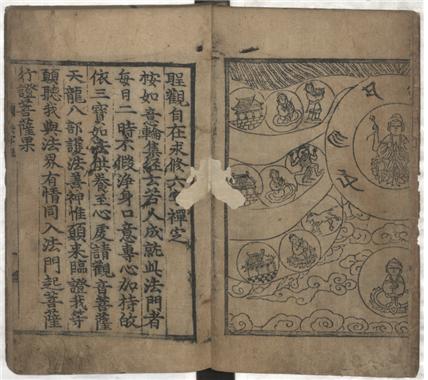 聖觀自在求修六字禪定
按如意輪集經云若人成就此法門者
每日二時不假淨身口意專心加持故
依三寶如法供養至心虔請觀音菩薩
天龍八部護法善神惟願來臨證我等
願聽我與法界有情同入法門起菩薩
行證菩薩果